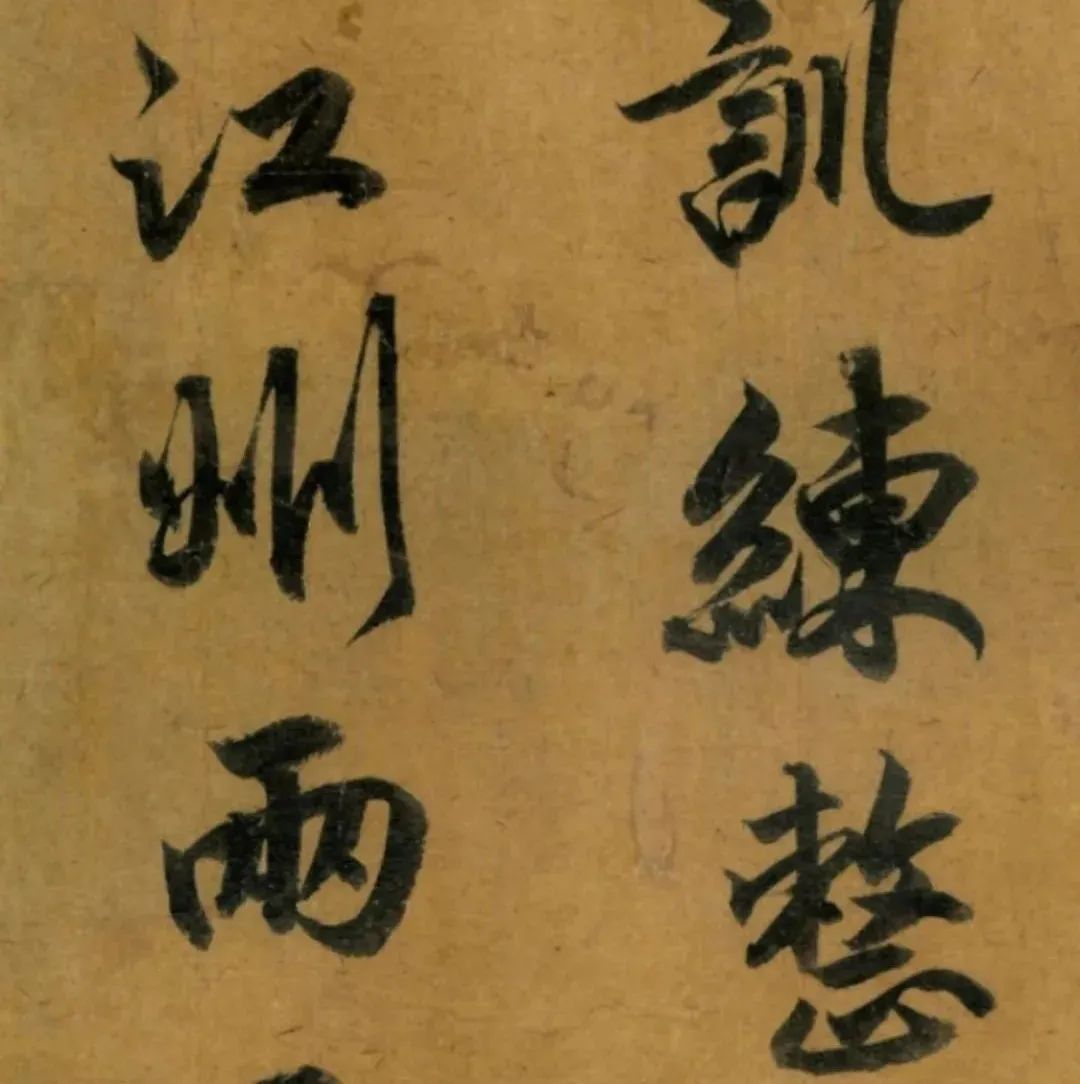 訓練整
江州兩